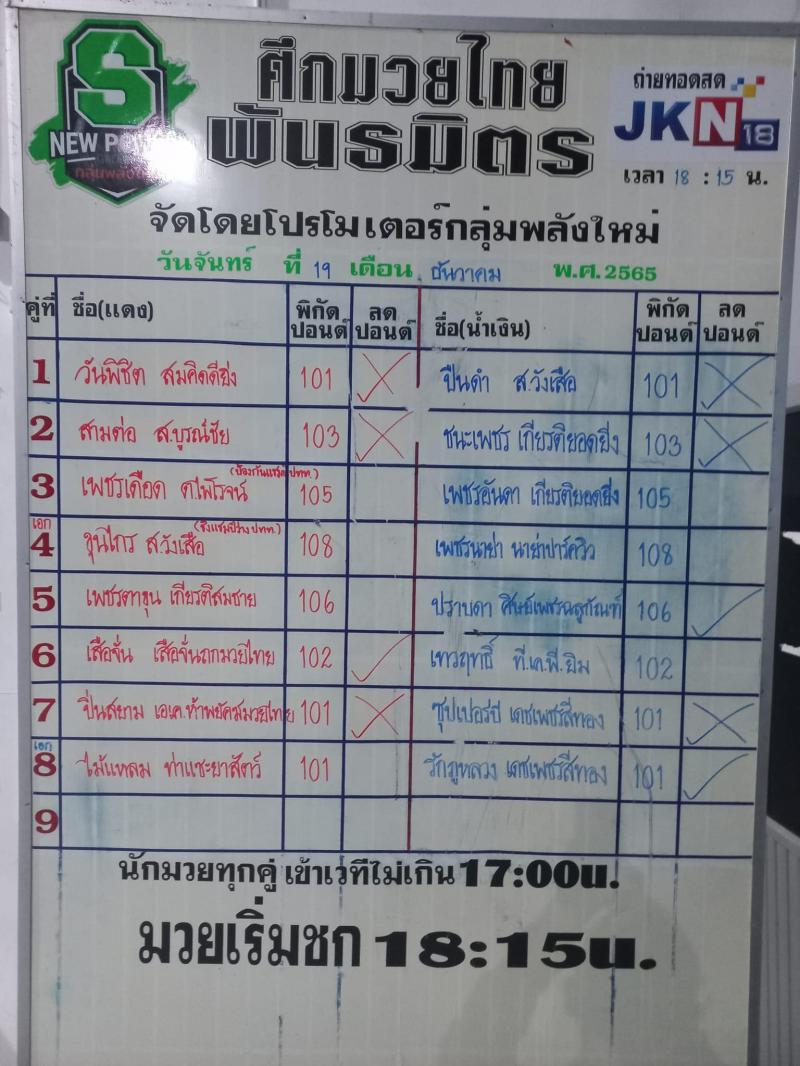 S
NEW POWER
กลุ่มพลังใหม่
ศึกมวยไทย
พันธมิตร
ถ่ายทอดสด
JKN18
เวลา 18 : 15 น.
จัดโดยโปรโมเตอร์กลุ่มพลังใหม่
วันจันทร์ ที่ 19 เดือน ธันวาคม พ.ศ.2565
คู่ที่ ชื่อ(แดง) พิกัดปอนด์ ลดปอนด์ ชื่อ(น้ำเงิน) พิกัดปอนด์ ลดปอนด์
1 วันพิชิต สมคิดดียิ่ง 101 ✗ ปืนดำ ส.วังเสือ 101 ✗
2 สามต่อ ส.บูรณ์ชัย 103 ✗ ชนะเพชร เกียรติยอดยิ่ง 103 ✗
(ป้องกันแชมป์ ปทท.)
3 เพชรเดือด ต.ไพโรจน์ 105 เพชรอันดา เกียรติยอดยิ่ง 105
เอก (ชิงแชมป์ว่าง ปทท.)
4 ขุนไกร ส.วังเสือ 108 เพชรนาย่า นาย่าปาร์ควิว 108
5 เพชรตาขุน เกียรติสมชาย 106 ปราบดา ศิษย์เพชรฉลูกัณฑ์ 106 ✓
6 เสือจั่น เสือจั่นถกมวยไทย 102 ✓ เทวฤทธิ์ ที.เค.พี.ยิม 102
7 ปิ่นสยาม เอเค.ท้าพยัคฆ์มวยไทย 101 ✗ ซุปเปอร์บี เดชเพชรสีทอง 101 ✗
เอก
8 ไม้แหลม ท่าแซะยาสัตว์ 101 รักภูหลวง เดชเพชรสีทอง 101 ✓
9
นักมวยทุกคู่ เข้าเวทีไม่เกิน 17:00น.
มวยเริ่มชก 18:15น.